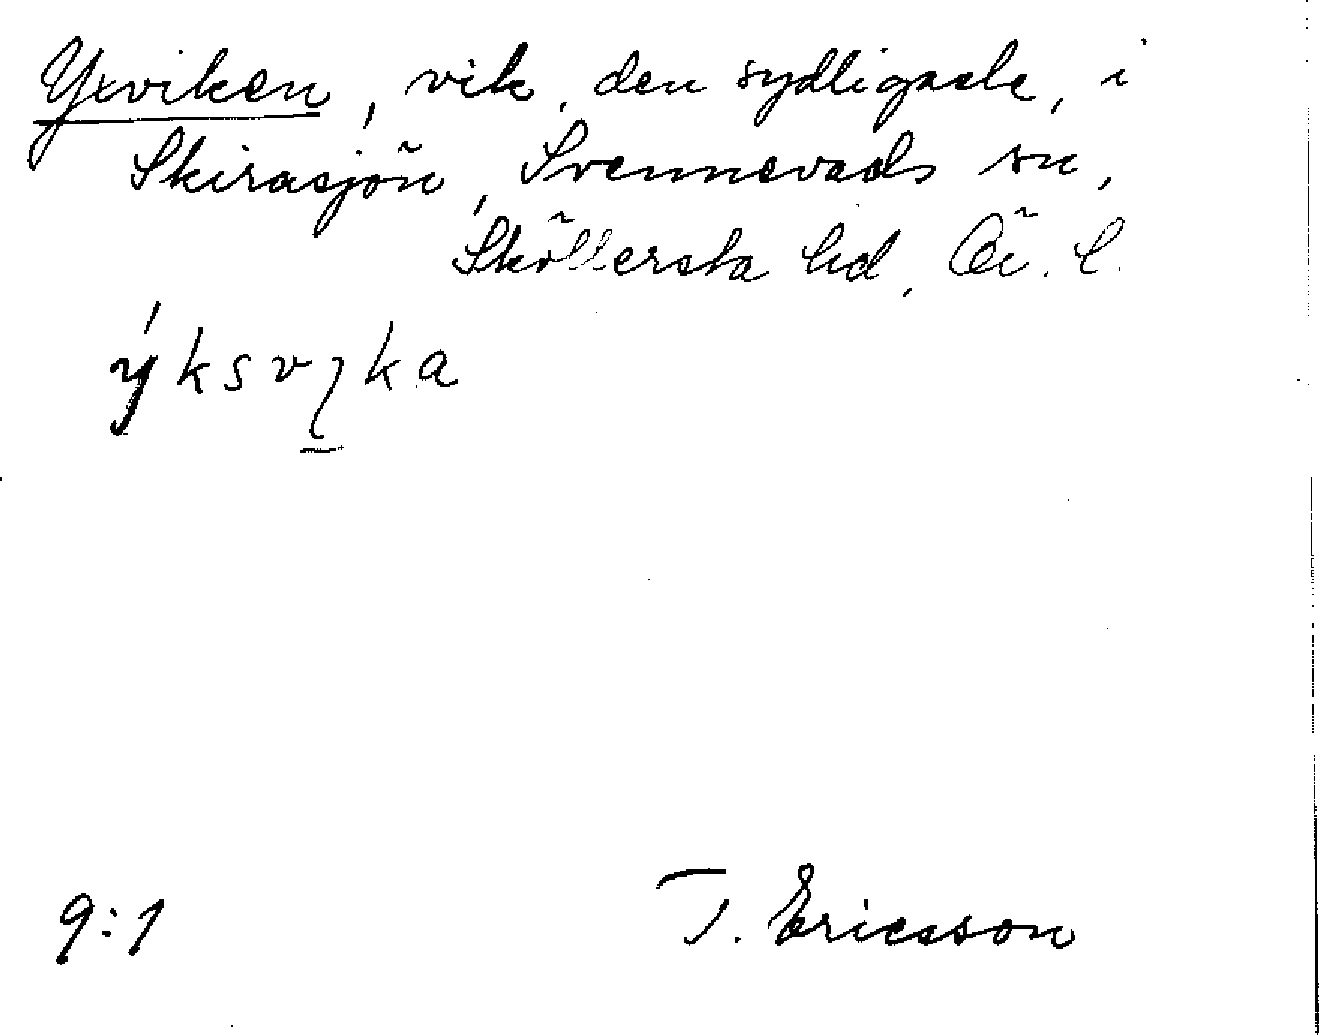 Yxviken, vik, den sydligaste, i
Skirasjön, Svennevads sn,
Sköllersta hd, Ör. l.
ýksvıka
9:1
T. Ericsson